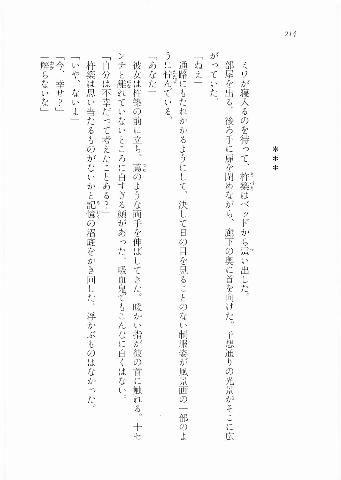 214
＊＊＊
ミワが寝入るのを待って、杵築はベッドから這い出した。
部屋を出る。後ろ手に扉を閉めながら、廊下の奥に首を向けた。予想通りの光景がそこに広
がっていた。
「ねえ」
通路にもたれかかるようにして、決して日の目を見ることのない制服姿が風景画の一部のよ
うに佇んでいる。
「あなた」
彼女は杵築の前に立ち、蔦のような両手を伸ばしてきた。暖かい指が彼の首に触れる。十セ
ンチと離れていないところに白すぎる顔があった。吸血鬼でもこんなに白くはない。
「自分は不幸だって考えたことある？」
杵築は思い当たるものがないかと記憶の沼底をかき回した。浮かぶものはなかった。
「いや、ないよ」
「今、幸せ？」
「解らないな」